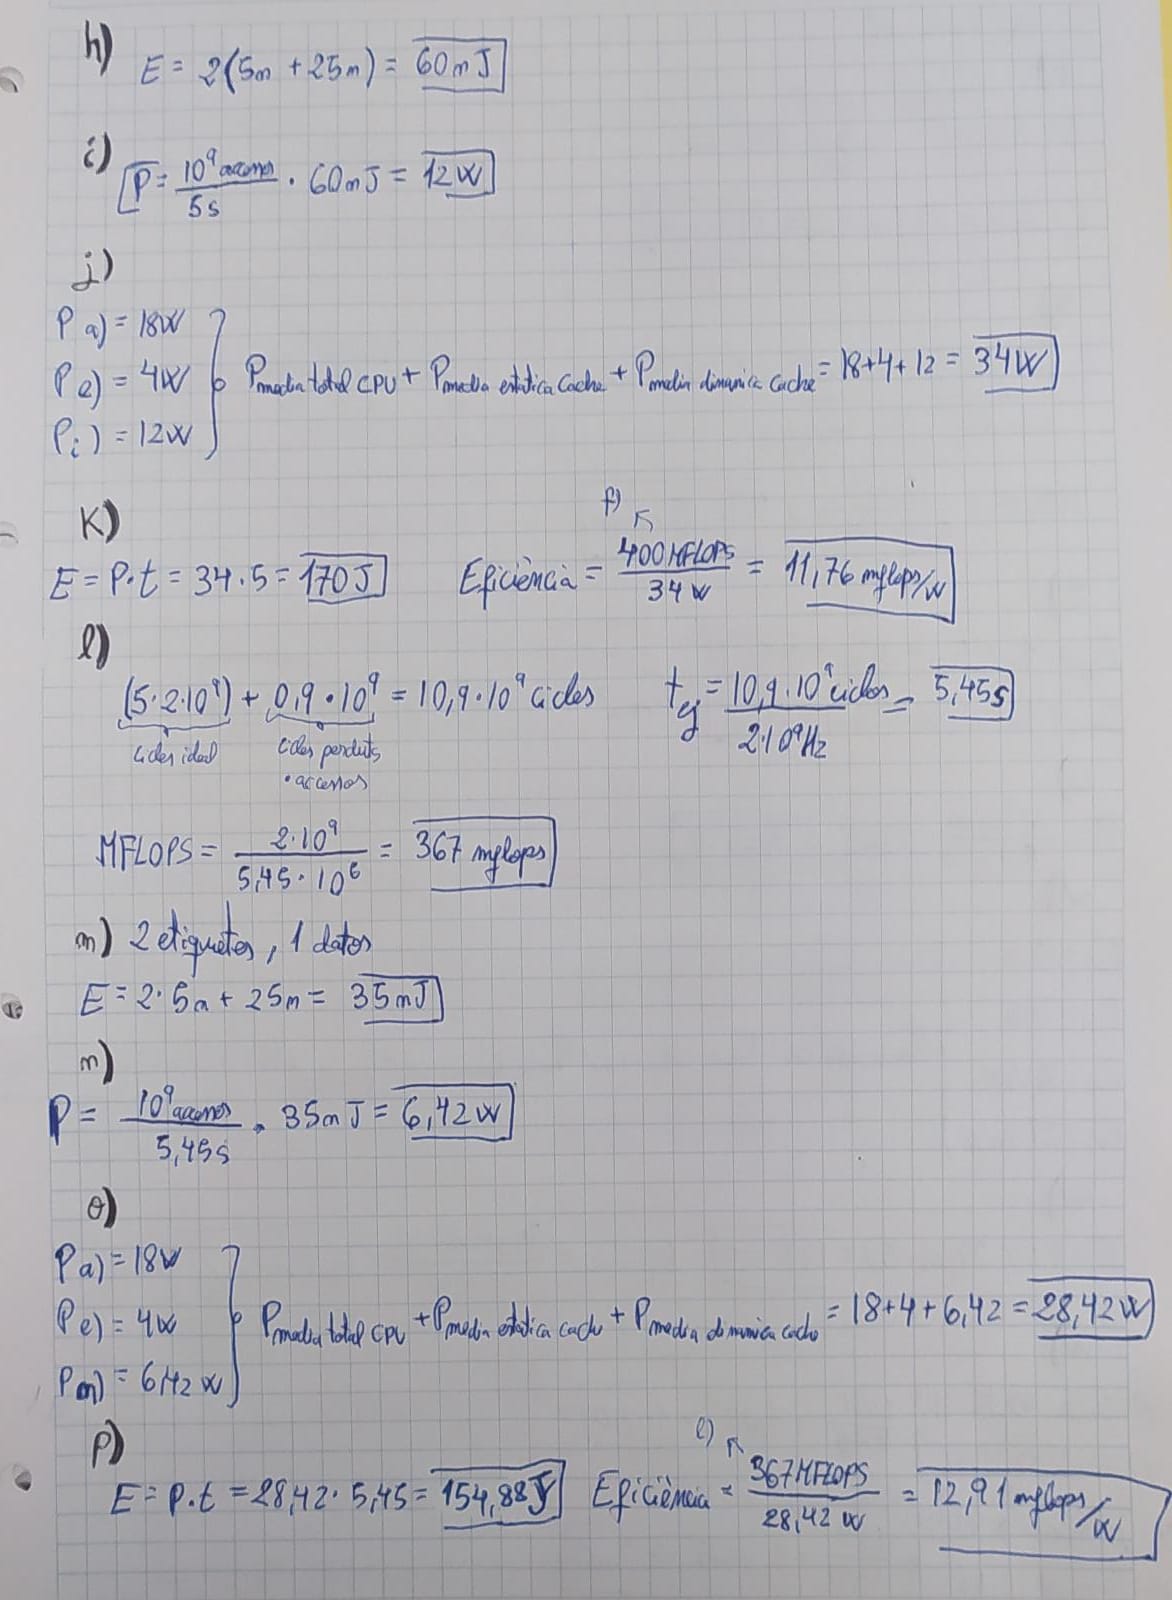 h)
E = 2(5m + 25m) = 60mJ
i)
P = 10⁹ accessos / 5s · 60mJ = 12W
j)
P a) = 18W
P e) = 4W
P i) = 12W
P media total CPU + P media estatica Cache + P media dinamica Cache = 18+4+12 = 34W
K)
f)
E = P·t = 34·5 = 170J Eficiència = 400MFLOPS / 34W = 11,76 mflops/W
l)
(5·2·10⁹) + 0,9·10⁹ = 10,9·10⁹ Cicles t ej = 10,9·10⁹ cicles / 2·10⁹Hz = 5,45s
Cicles ideal cicles perduts
· accessos
MFLOPS = 2·10⁹ / 5,45·10⁶ = 367 mflops
m) 2 etiquetes, 1 datos
E = 2·5m + 25m = 35mJ
n)
P = 10⁹ accessos / 5,45s · 35mJ = 6,42W
o)
P a) = 18W
P e) = 4W
P n) = 6,42W
P media total CPU + P media estatica cache + P media dinamica cache = 18+4+6,42 = 28,42W
p)
l)
E = P·t = 28,42·5,45 = 154,88J Eficiència = 367MFLOPS / 28,42W = 12,91 mflops/W